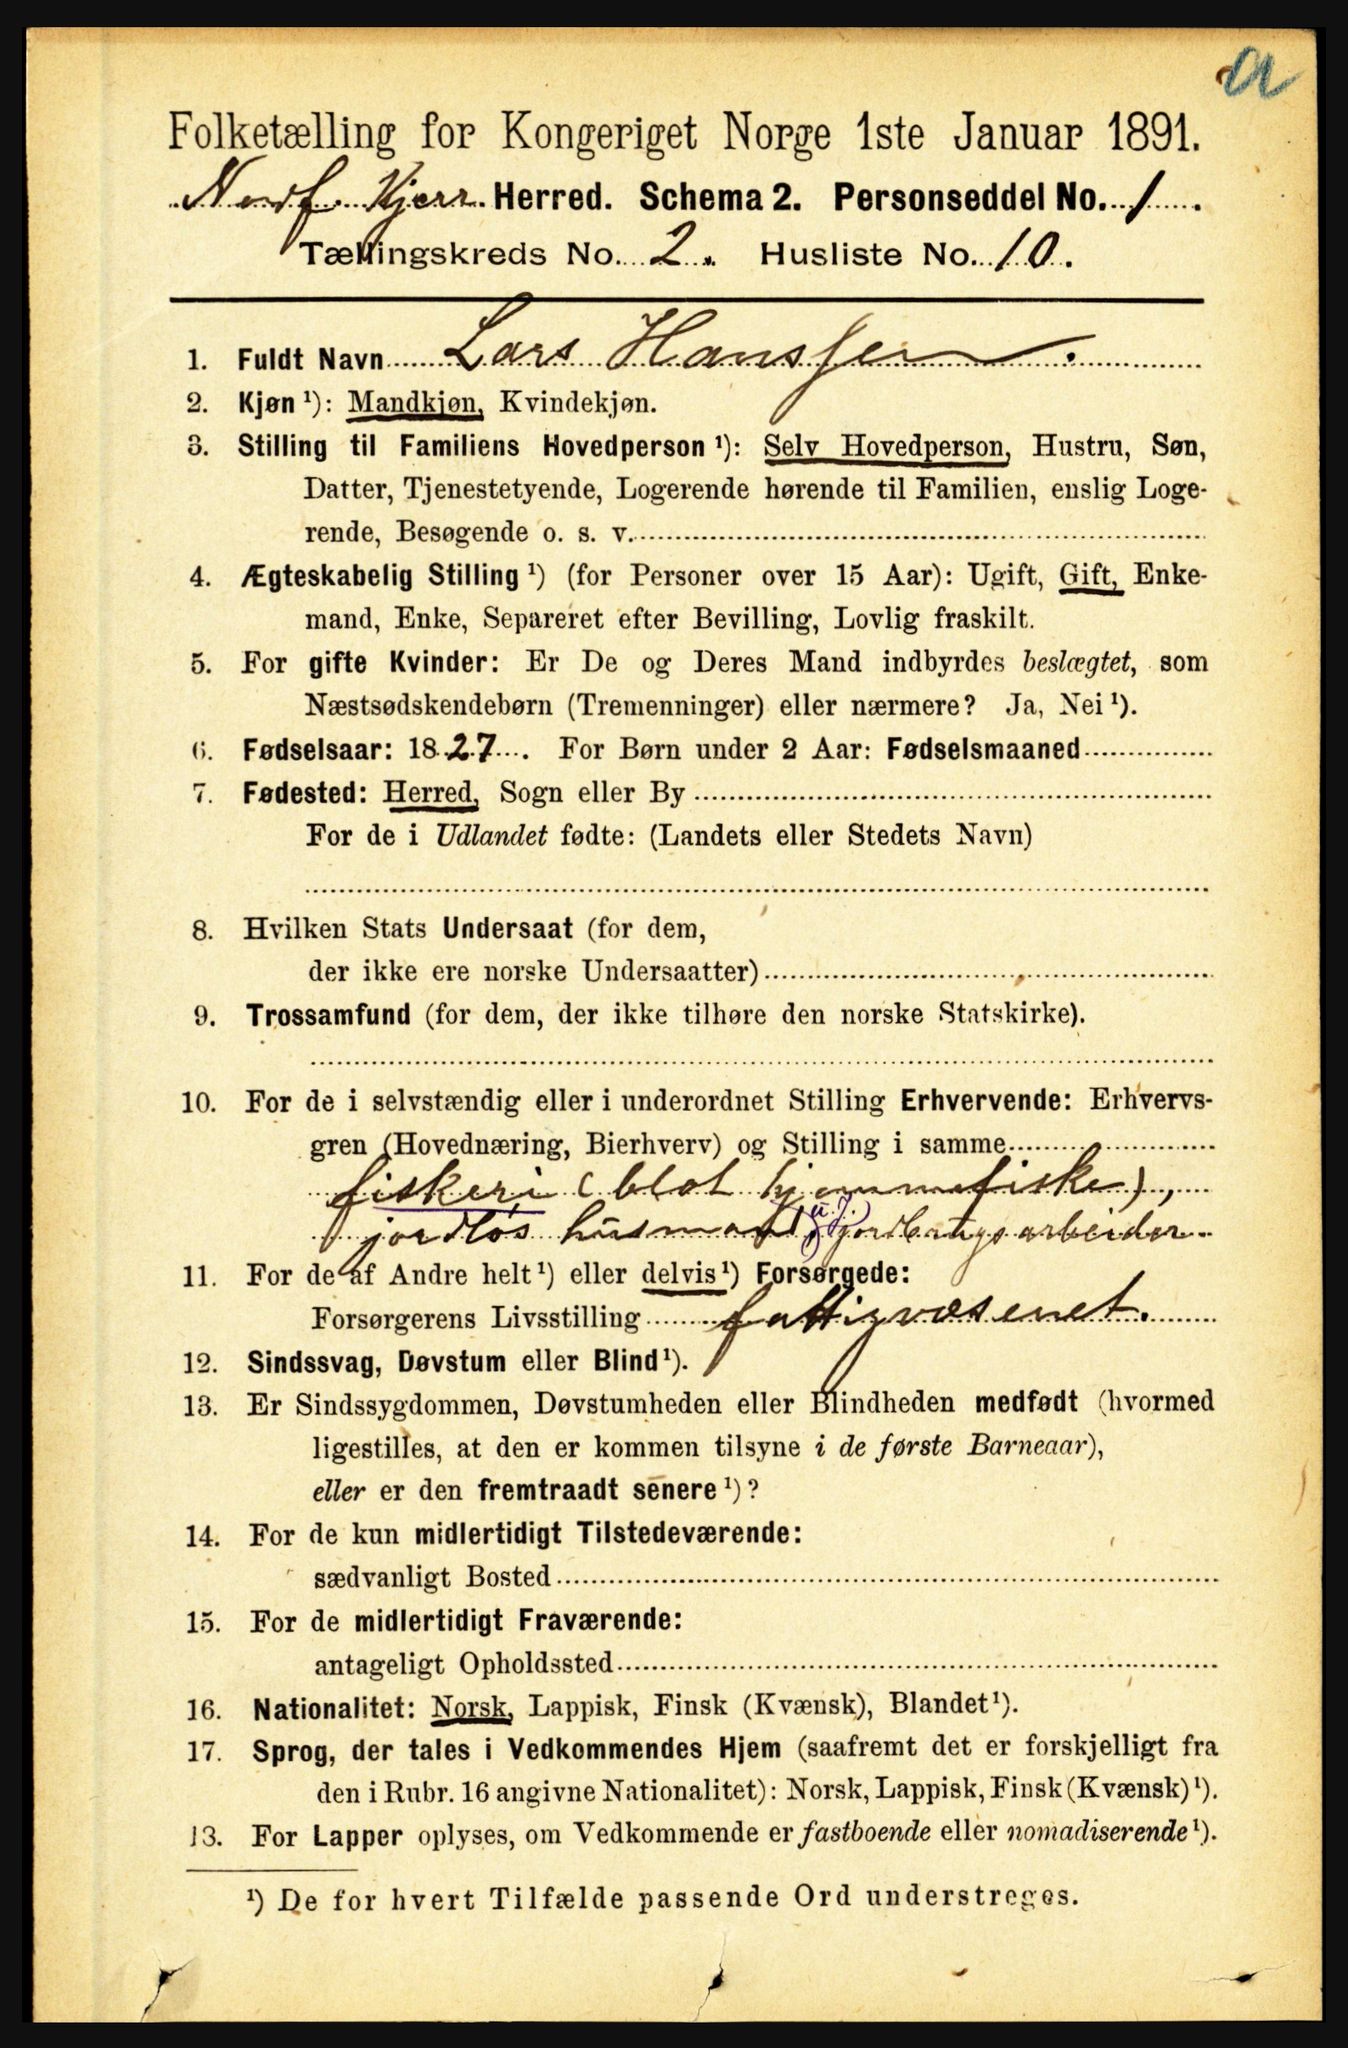 a
Folketælling for Kongeriget Norge 1ste Januar 1891.
Kjerr Herred. Schema 2. Personseddel No. 1.
Tællingskreds No. 2. Husliste No. 10.
1. Fuldt Navn Lars Hanssen.
2. Kjøn ¹): Mandkjøn, Kvindekjøn.
3. Stilling til Familiens Hovedperson ¹): Selv Hovedperson, Hustru, Søn,
Datter, Tjenestetyende, Logerende hørende til Familien, enslig Loge-
rende, Besøgende o. s. v.
4. Ægteskabelig Stilling ¹) (for Personer over 15 Aar): Ugift, Gift, Enke-
mand, Enke, Separeret efter Bevilling, Lovlig fraskilt.
5. For gifte Kvinder: Er De og Deres Mand indbyrdes beslægtet, som
Næstsødskendebørn (Tremenninger) eller nærmere? Ja, Nei ¹).
6. Fødselsaar: 1827. For Børn under 2 Aar: Fødselsmaaned
7. Fødested: Herred, Sogn eller By
For de i Udlandet fødte: (Landets eller Stedets Navn)
8. Hvilken Stats Undersaat (for dem,
der ikke ere norske Undersaatter)
9. Trossamfund (for dem, der ikke tilhøre den norske Statskirke).
10. For de i selvstændig eller i underordnet Stilling Erhvervende: Erhvervs-
gren (Hovednæring, Bierhverv) og Stilling i samme
fiskeri (blot hjemmefiske),
jordløs husmand, u. J. jordbrugsarbeider.
11. For de af Andre helt ¹) eller delvis ¹) Forsørgede:
Forsørgerens Livsstilling fattigvæsenet.
12. Sindssvag, Døvstum eller Blind ¹).
13. Er Sindssygdommen, Døvstumheden eller Blindheden medfødt (hvormed
ligestilles, at den er kommen tilsyne i de første Barneaar),
eller er den fremtraadt senere ¹)?
14. For de kun midlertidigt Tilstedeværende:
sædvanligt Bosted
15. For de midlertidigt Fraværende:
antageligt Opholdssted
16. Nationalitet: Norsk, Lappisk, Finsk (Kvænsk), Blandet ¹).
17. Sprog, der tales i Vedkommendes Hjem (saafremt det er forskjelligt fra
den i Rubr. 16 angivne Nationalitet): Norsk, Lappisk, Finsk (Kvænsk) ¹).
13. For Lapper oplyses, om Vedkommende er fastboende eller nomadiserende ¹).
¹) De for hvert Tilfælde passende Ord understreges.